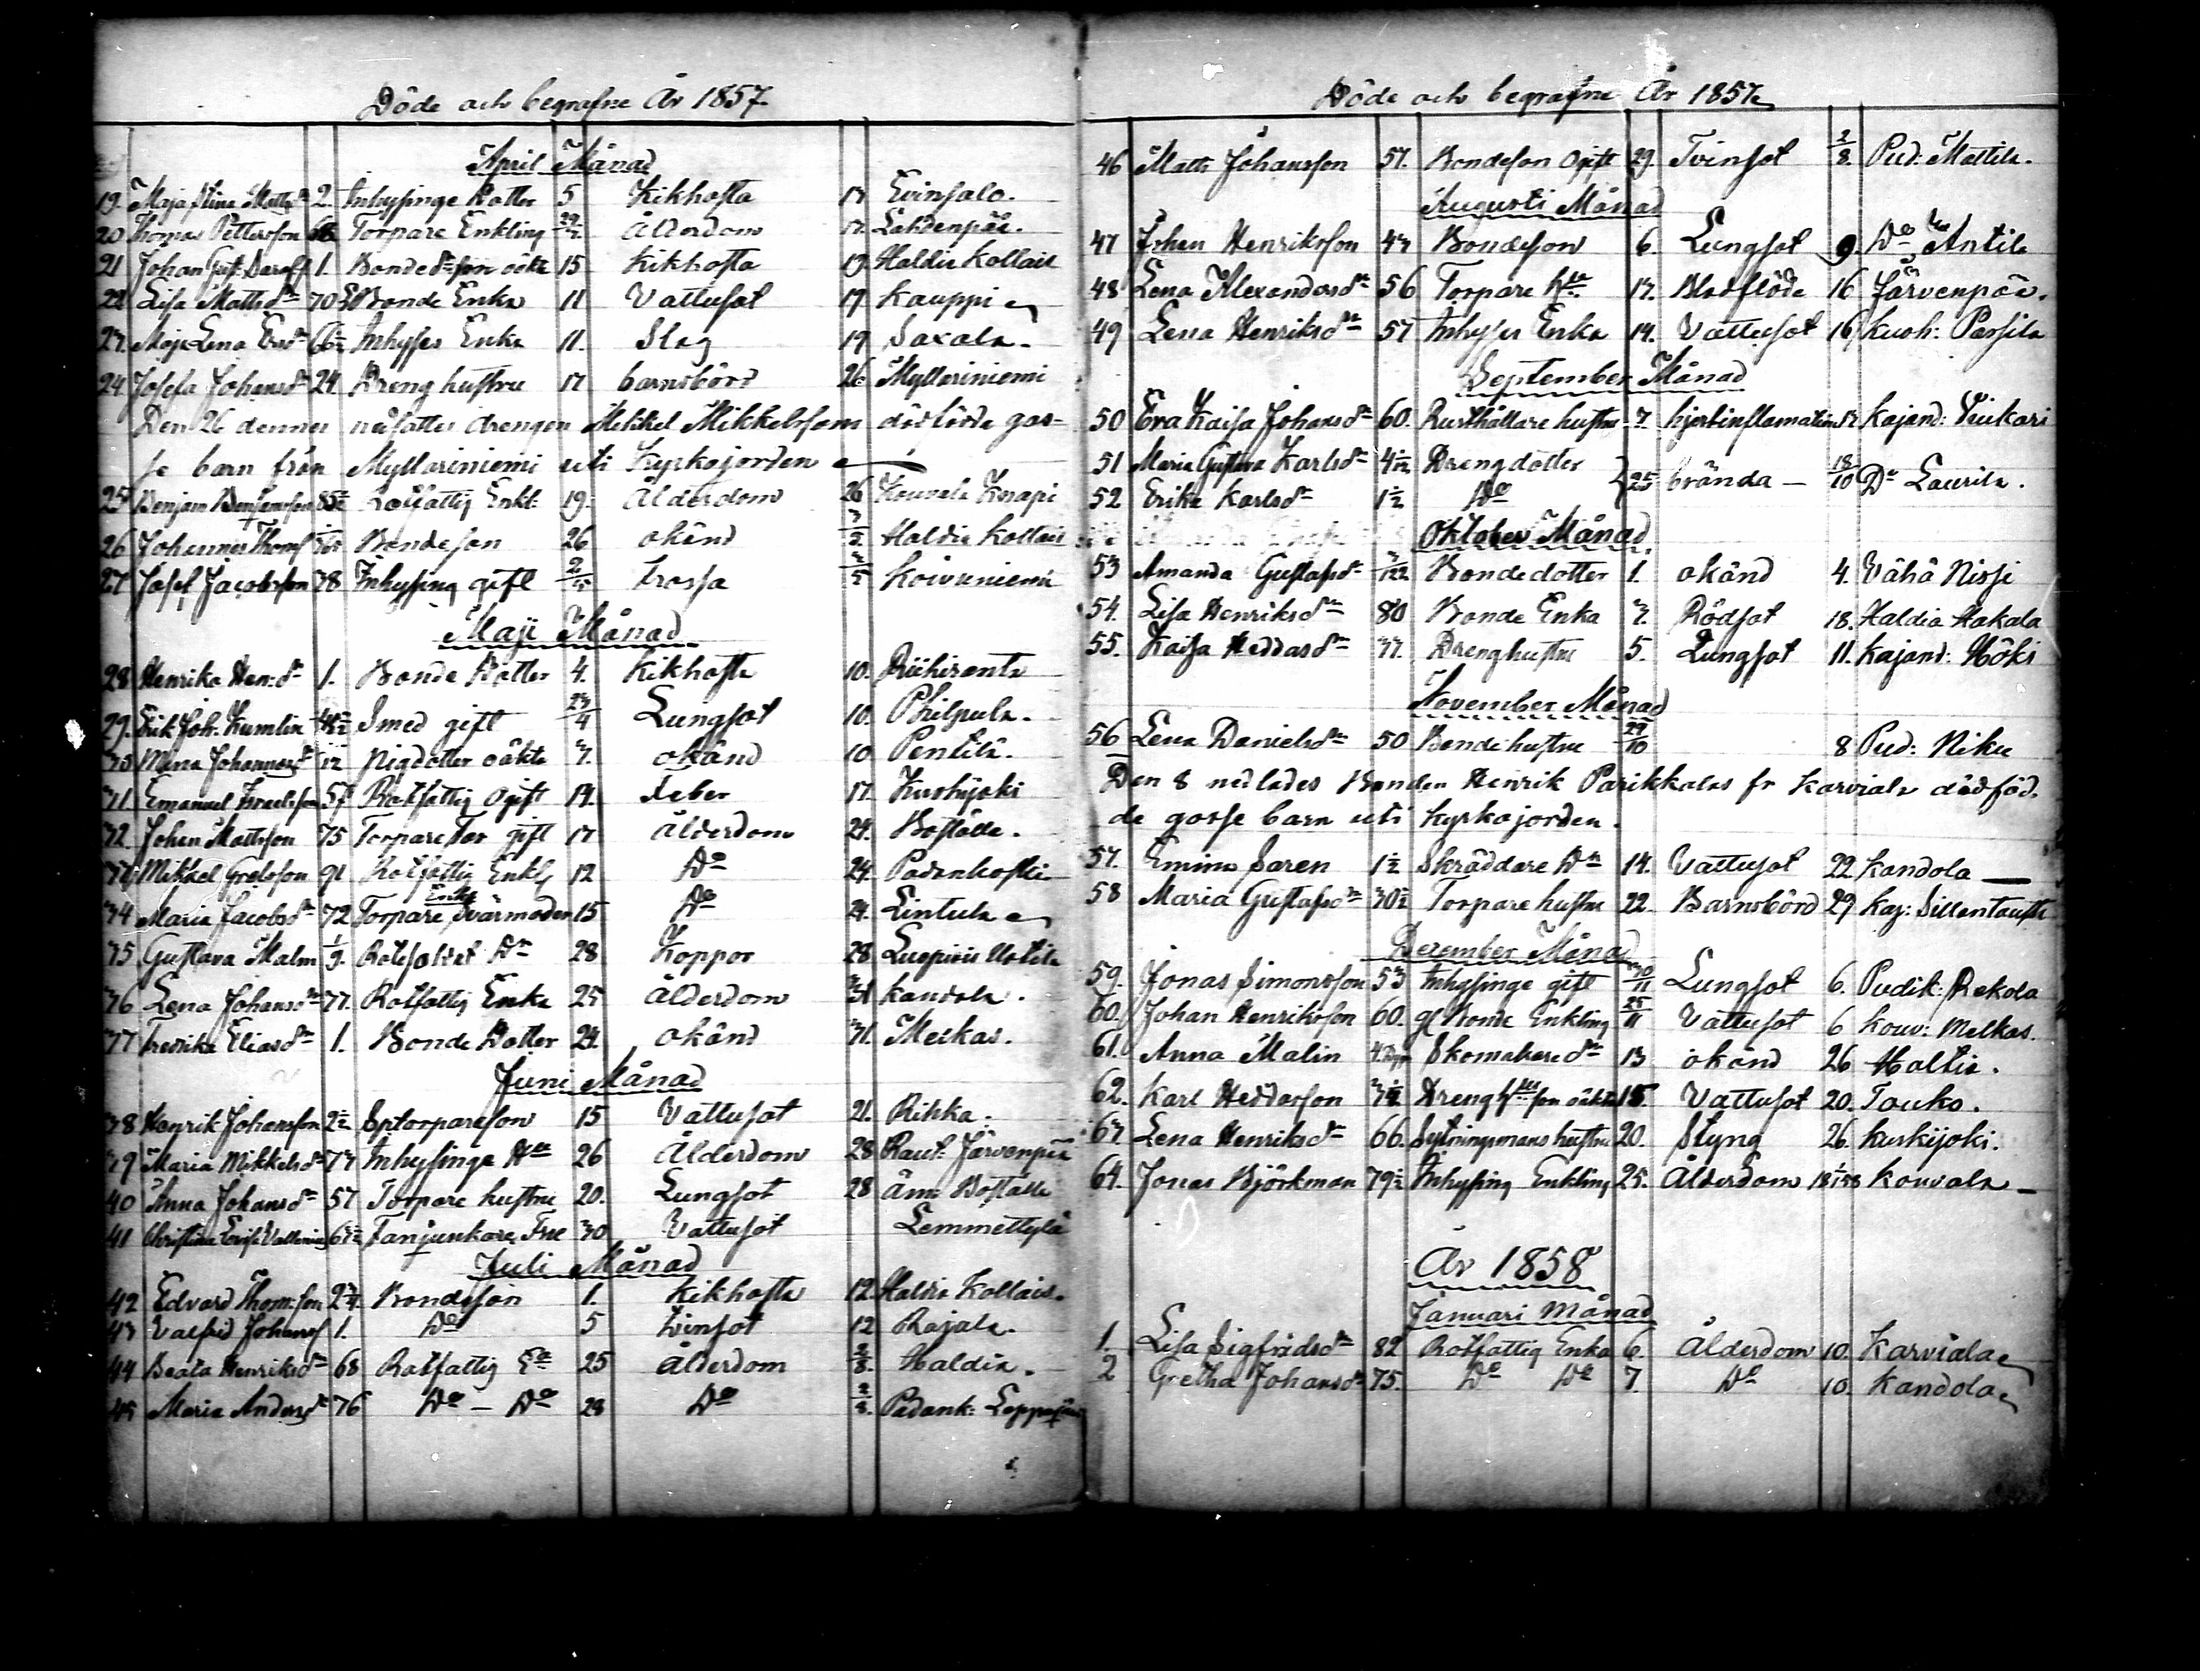 Döde och begrafne År 1857.
April Månad
19. Maja Stina Mattsdr 2. Inhysinge Dotter 5 Kikhosta 13 Evinsalo.
20 Thomas Pettersson Torpare Enkling Ålderdom 13. Lahdenpää.
21 Johan Gust. 1. Bonde son oäkta 15 Kikhosta 13 Haldia Kollais
22 Lisa Mattsdr 70 Bonde Enka 11 Vattusot 19 Kauppi
23. Maja Lena Inhyses Enka 11. Slag 19 Saxala.
24 Josefa Johansdr 24. Dreng hustru 17 barnsbörd 26 Myllariniemi
Den 26 dennes nedsattes drengen Mikkel Mikkelssons dödfödde gos-
se barn från Myllariniemi uti Kyrkojorden
25 Benjam Benjamsson Rotfattig Enkl: 19. Ålderdom 26 Kouvala Knapi
26 Johannes Thomss Bondeson 26 okänd 3/5. Haldia Kollais
27 Josef Jacobsson 38 Inhysing gift trossa 3/5 Koivuniemi
Maji Månad
28 Henrika Hen:dr 1. Bonde Dotter 4. Kikhosta 10. Riihiranta
29. Erik Joh. Kumlin Smed gift 23/4 Lungsot 10. Philpula.
30 Mina Johannesdr Pigdotter oäkta 7. okänd 10 Pentilä.
31 Emanuel Israelsson 57 Rotfattig Ogift 14. Feber 17. Kuskijoki
32. Johan Mattsson 75 Torpare Far gift 17 Ålderdom 24. Boställe.
33 Mikkel Grelsson 91 Rotfattig Enkl. 12 Do 24. Padankoski
34 Maria Jacobsdr 72 Torpare Enka Svärmoder 15 Do 24. Lintula
35 Gustava Malm 1/9. Rotesoldat Dr 28 Koppor 28 Luopiois Uotila
36 Lena Johansdr 77. Rotfattig Enka 25 Ålderdom 31 Kandola.
37 Fredrika Eliasdr 1. Bonde Dotter 24. okänd 31. Meikas.
Juni Månad
38 Henrik Johansson 2½ Sptorpareson 15 Vattusot 21. Rihka.
39 Maria Mikkelsdr 73 Inhysinge Hu 26 Ålderdom 28 Raut: Järvenpää
40 Anna Johansdr 57 Torpare hustru 20. Lungsot 28 Ämi Boställe
41 Christina Lovisa Vallenius Fanjunkare Fru 30 Vattusot Lemmettylä
Juli Månad
42 Edvard Thom:son Bondeson 1. Kikhosta 12. Haldia Kollais.
43 Valfrid Johanss 1. Do 5 Tvinsot 12 Rajala.
44 Beata Henriksdr 68 Rotfattig Ea 25 Ålderdom 2/8. Haldia.
45 Maria Andersdr 76 Do – Do 28 Do 2/8. Padank:
Döde och begrafne År 1857
46 Matts Johansson 51. Bondeson Ogift 29. Tvinsot 2/8. Pud: Mattila.
Augusti Månad
47 Johan Henriksson 43 Bondeson 6. Lungsot 9. Do Antila
48 Lena Alexandersdr 56 Torpare Hu 13. Blodflöde 16 Järvenpää.
49 Lena Henriksdr 57 Inhyses Enka 14. Vattusot 16 Kuoh: Passila
September Månad
50 Eva Kaisa Johansdr 60. Rusthållare hustru 7. hjertinflamation 13 Kajand: Viukari
51 Maria Gustava Karlsdr Drengdotter
52 Erika Karlsdr 1½ Do 25 brända – 18/10 Do Laurila.
Oktober Månad
53 Amanda Gustafsdr Bondedotter 1. okänd 4. Vähä Nissi
54. Lisa Henriksdr 80 Bonde Enka 7. Rödsot 18. Haldia Hakala
55. Kaisa Heddasdr 37. Drenghustru 5. Lungsot 11. Kajand: Höki
November Månad
56 Lena Danielsdr 50 Bondehustru 29/10 8 Pud: Niku
Den 8 nedlades Bonden Henrik Parikkalas fr Karviala dödföd-
de gosse barn uti Kyrkojorden.
57. Emina Saren 1½ Skräddare Dr 14. Vattusot 22 Kandola
58 Maria Gustafsdr 30½ Torpare hustru 22 Barnsbörd 29 Kaj: Sillantausta
December Månad
59. Jonas Simonsson 53 Inhysinge gift 30/11 Lungsot 6. Pudik: Rekola
60. Johan Henriksson 60. gl Bonde Enkling 25/11 Vattusot 6 Kouv: Melkas.
61. Anna Malin Skomakare dr 13 okänd 26 Haltia.
62. Karl Heddasson 3½ Dreng son oäkta 15. Vattusot 20. Touko.
63 Lena Henriksdr 66. Sytningsmans hustru 20. Styng 26. Kuskijoki.
64. Jonas Björkman 79½ Inhysing Enkling 25. Ålderdom Kouvala
År 1858
Januari Månad
1. Lisa Sigfridsdr 82 Rotfattig Enka 6. Ålderdom 10. Karviala
2 Gretha Johansdr 75. Do Do 7 Do 10. Kandola